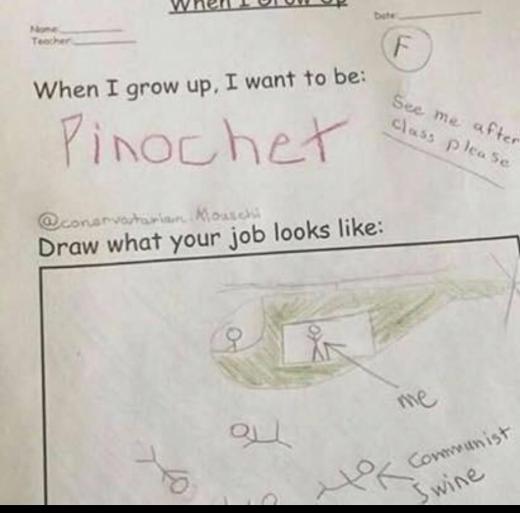 When I Grow Up
Name:
Teacher:
Date:
F
When I grow up, I want to be:
Pinochet
See me after
class please
@conservatarian.Mouschi
Draw what your job looks like:
me
Communist
Swine